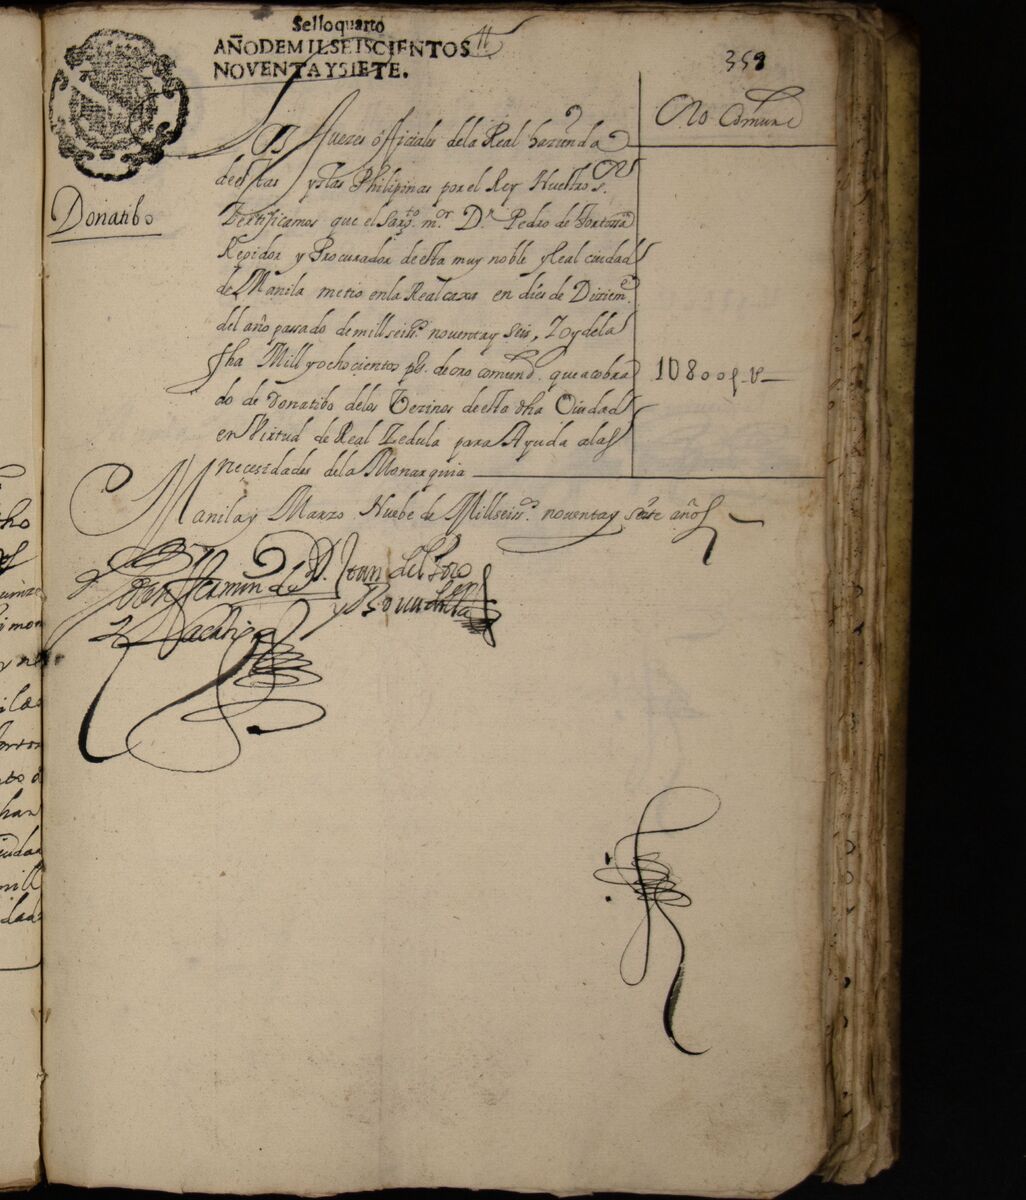 Sello quarto
AÑO DE MIL SEISCIENTOS
NOVENTA Y SIETE.
359
Oro Comun
Donatibo
Los Juezes ófficiales de la Real hazienda
de estas yslas Philipinas por el Rey Nuestro Sr.
Zertificamos que el Sargto. mor. Dn. Pedro de
Regidor y Procurador de esta muy noble y leal ciudad
de Manila metio en la Real caxa en dies de Diziembe.
del año passado de mill seiss. noventa y seis, y de la
fha Mill y ochocientos ps. de oro comun que a cobra
do de Donatibo de los Vezinos de esta dha Ciudad
en Virtud de Real Zedula para Ayuda a las
necesidades de la Monarquia
1U800 ps.
Manila y Marzo Nuebe de Mill seiss. noventa y siete años
D. Juan del Foro